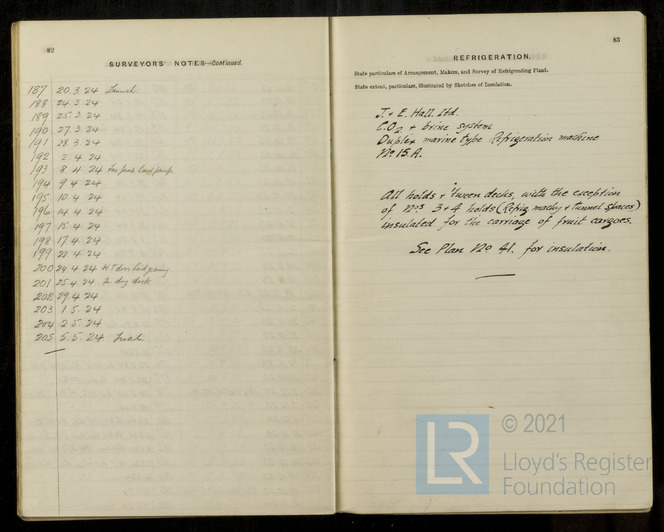 82
SURVEYORS' NOTES—Continued.
187 20.3.24 Launch
188 24.3.24
189 25.3.24
190 27.3.24
191 28.3.24
192 2.4.24
193 8.4.24
194 9.4.24
195 10.4.24
196 14.4.24
197 15.4.24
198 17.4.24
199 22.4.24
200 24.4.24 WT doors
201 25.4.24 In dry dock
202 29.4.24
203 1.5.24
204 2.5.24
205 5.5.24
83
REFRIGERATION.
State particulars of Arrangement, Makers, and Survey of Refrigerating Plant.
State extent, particulars, illustrated by Sketches of Insulation.
J. & E. Hall. Ltd.
C.O2 + brine system
Duplex marine type Refrigeration machine
No 15.A.
All holds + 'tween decks, with the exception
of Nos 3+4 holds (Refrig machy + tunnel spaces)
insulated for the carriage of fruit cargoes.
See Plan No 41. for insulation.
LR
© 2021
Lloyd's Register
Foundation